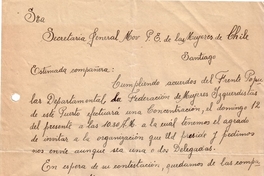 Sra
Secretaria General Mov P.E. de las Mujeres de Chile
Santiago
Estimada compañera:
Cumpliendo acuerdos del Frente Popu
lar Departamental la Federación de Mujeres Izquierdistas
de este Puerto efectuará una Concentración, el domingo 12
del presente a las 10.30 A.M. a la cual tenemos el agrado
de invitar a la organización que Ud preside y pedimos
nos envie aunque sea una o dos Delegadas.
En espera de su contestación, quedamos de las comp